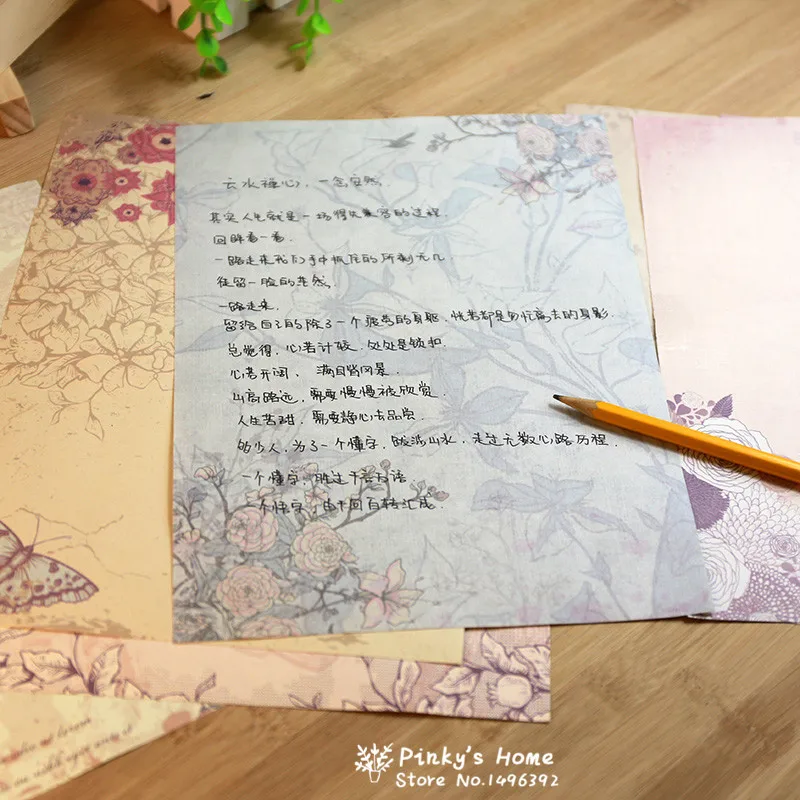 云水禅心，一念安然.
其实人生就是一场得失兼容的过程.
回眸看一看.
一路走来我们手中抓住的所剩无几.
徒留一脸的茫然,
一路走来.
留给自己的除了一个疲劳的身躯. 恍若都是匆忙离去的身影.
总觉得, 心若计较. 处处是锁扣.
心若开阔、 满目皆风景.
山高路远, 需要慢慢被欣赏.
人生苦甜. 需要静心去品尝.
多少人, 为了一个懂字, 跋涉山水, 走过无数心路历程.
一个懂字, 胜过千言万语
一个懂字, 由千回百转汇成.
Pinky's Home
Store No.1496392